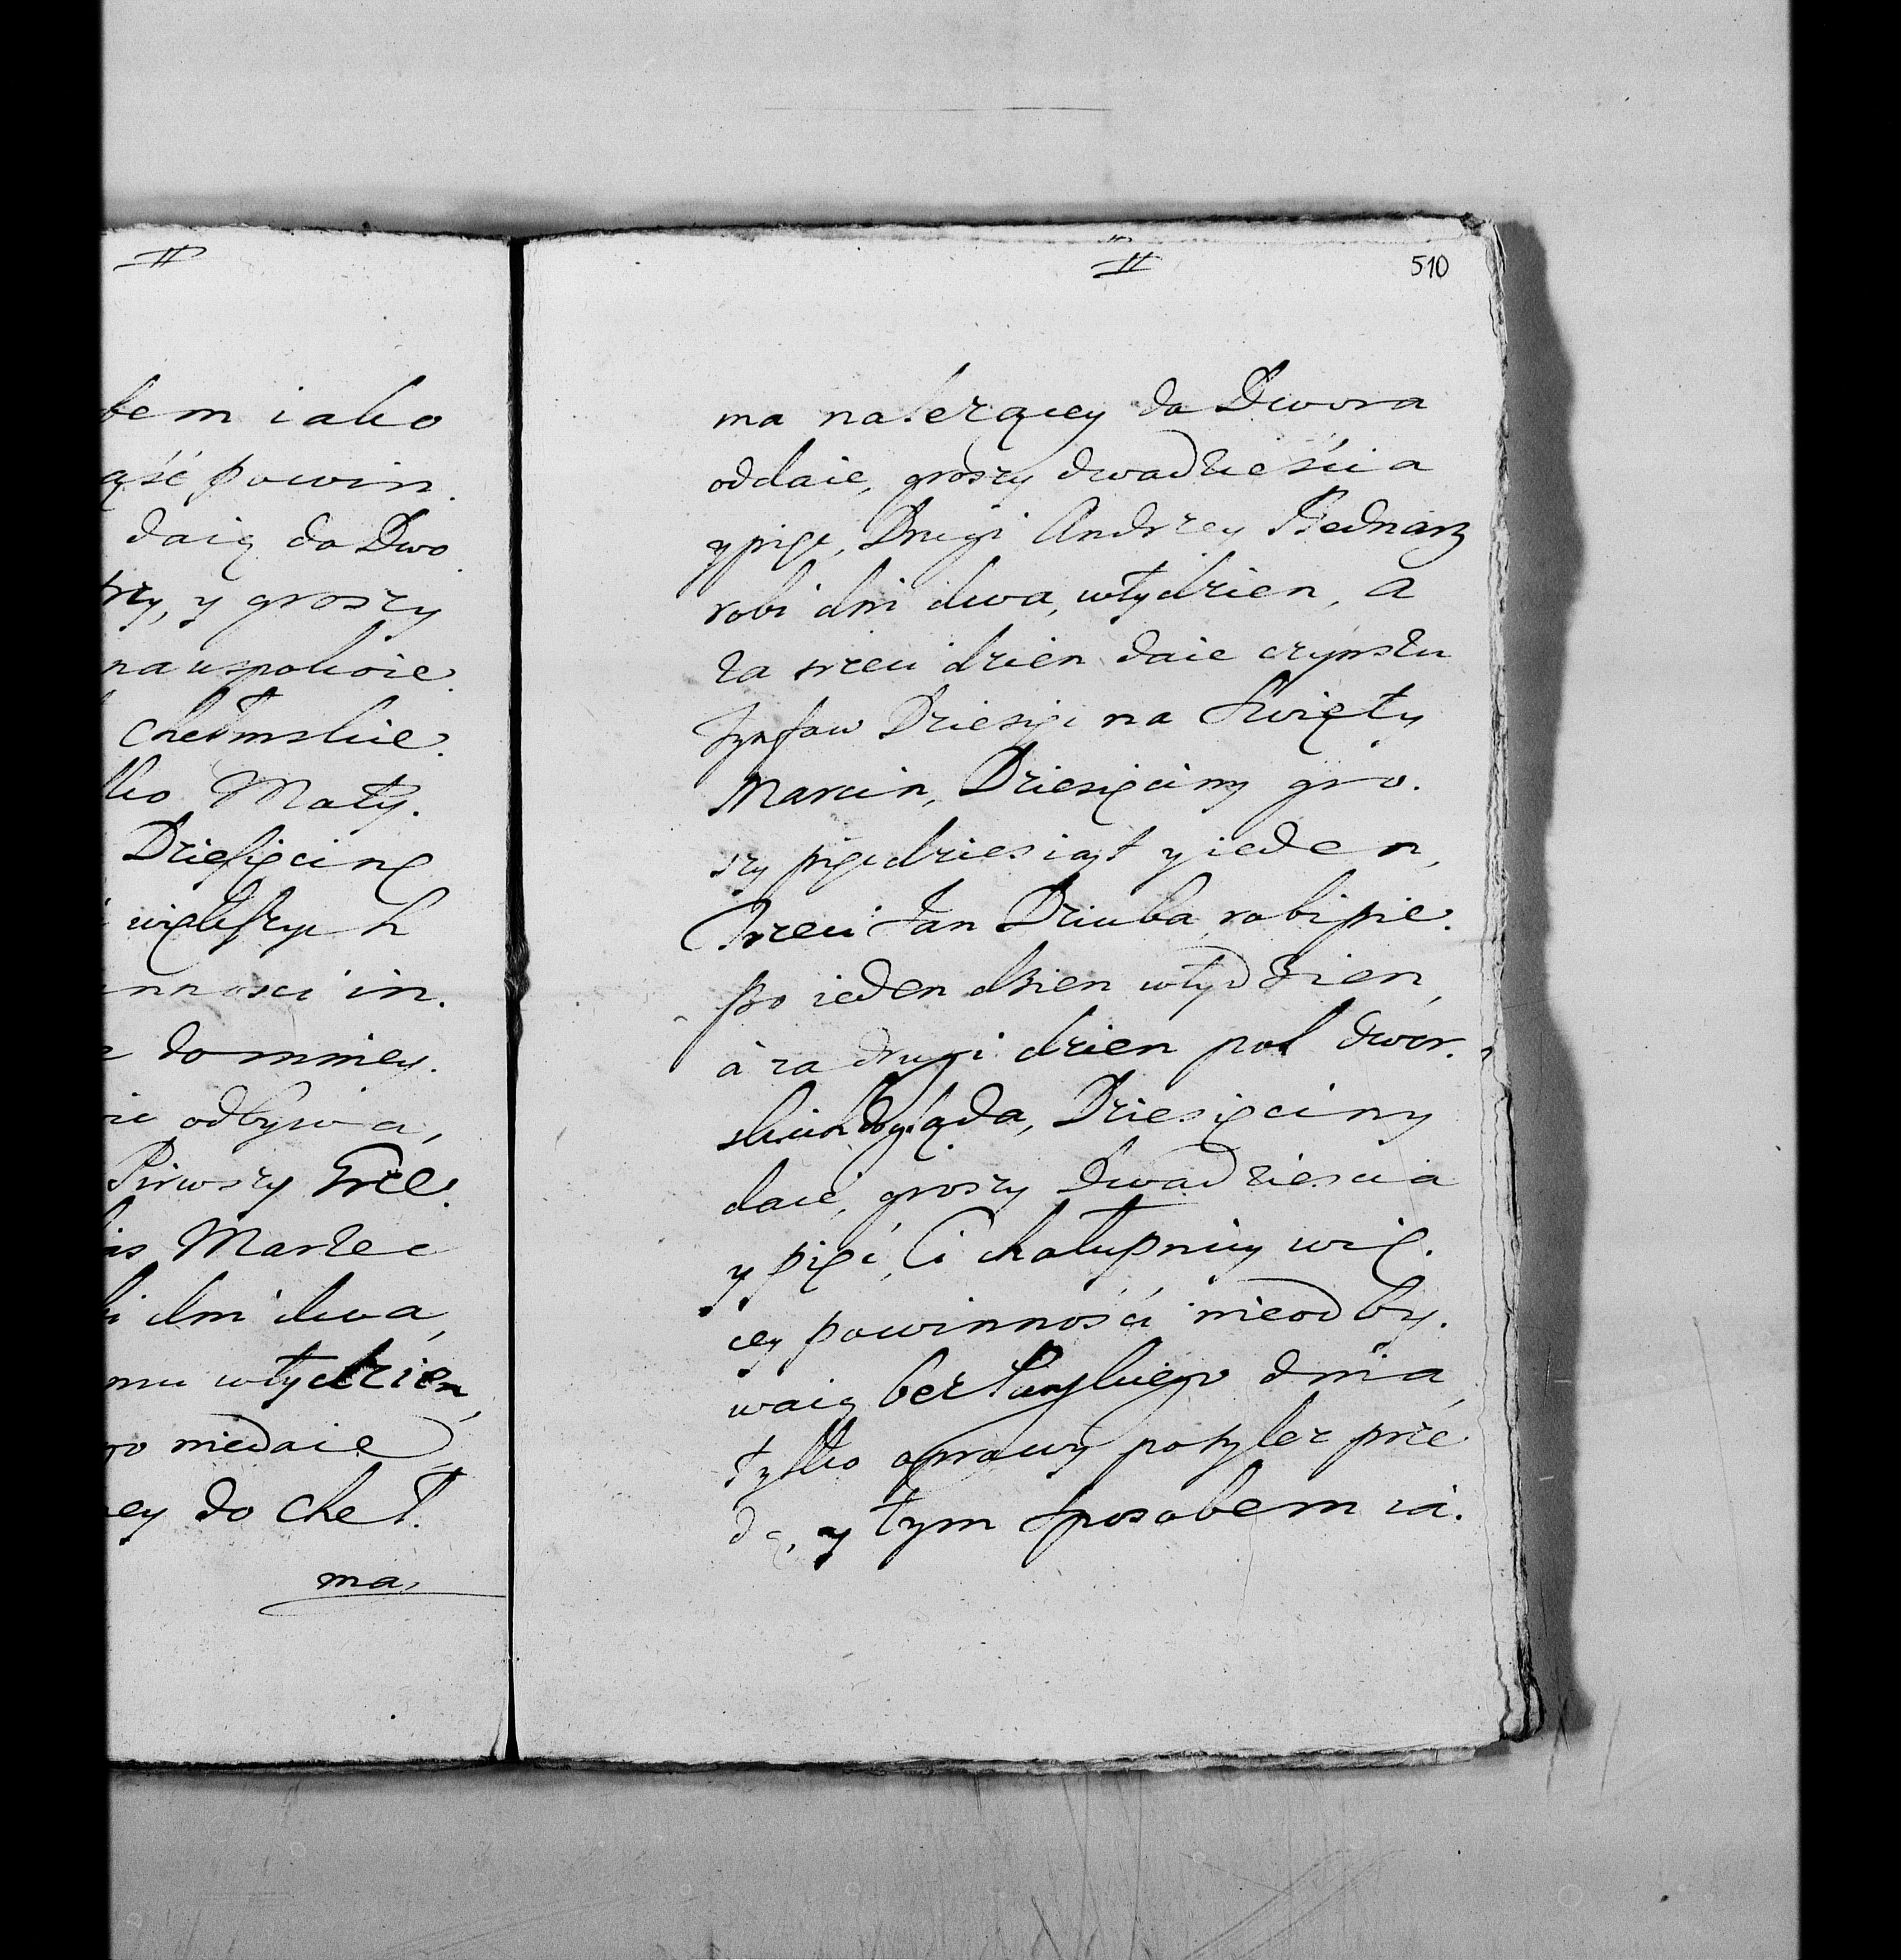 II
bem iako
ąść powin.
daią do Dwo
trzy, y groszy
na uspokoie.
Chełmskie.
lko Mały.
Dziesięcinę
większych
innosci in.
do mniey.
odbywa,
Pirwszy Grze.
Marzec
dni dwa,
mu wtydzien,
go niedaie,
ey do Cheł.
ma,
II
510
ma nalezącey do Dwora
oddaie, groszy dwadzieścia
y pięc, Drugi Andrzey Bednarz
robi dni dwa, wtydzien, a
za trzeci dzien daie czynszu
tynfow Dziesięc na Swięty
Marcin, Dziesięciny gro.
szy pięcdziesiąt y ieden,
Trzeci Jan Dziuba, robi pie.
szo ieden dzien wtydzien,
a za drugi dzien pol dwor.
skich dogląda, Dziesięciny
daie, groszy Dwadziescia
y pięć, Ci chałupnicy wię.
cey powinnośći nieodby.
waią bez Wszelkiego dnia,
tylko oprawy potylez przę
dą, y tym sposobem ia.